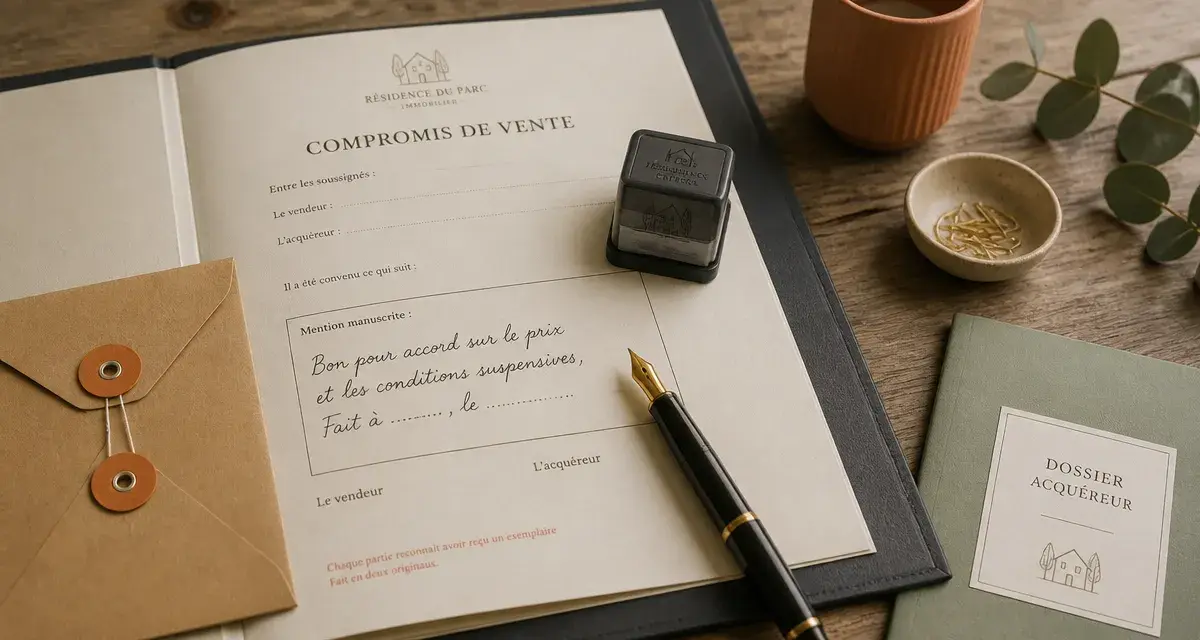 RÉSIDENCE DU PARC
IMMOBILIER
COMPROMIS DE VENTE
Entre les soussignés :
Le vendeur :
L'acquéreur :
Il a été convenu ce qui suit :
Mention manuscrite :
Bon pour accord sur le prix
et les conditions suspensives,
Fait à ........., le ...............
Le vendeur
L'acquéreur
Chaque partie reconnaît avoir reçu un exemplaire
Fait en deux originaux.
DOSSIER
ACQUÉREUR